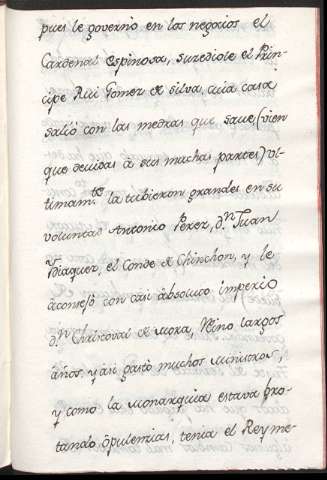 pues le governò en los negocios el
Cardenal espinosa, surediole el Prin-
cipe Rui Gomez de silva, cuia casa
saliò con las medras que save, (vien
que devidas â sus muchas partes) vl-
timam.te la tubieron grandes en su
voluntad Antonio Perez, d.n Juan
Ydiaquez, el Conde de Chinchon, y le
aconsejò con casi absoluto imperio
d.n Christoval de Mora, largos
años, y asi gastò muchos ministros,
y como la monarquia estava bro-
tando ôpulencias, tenia el Rey me-